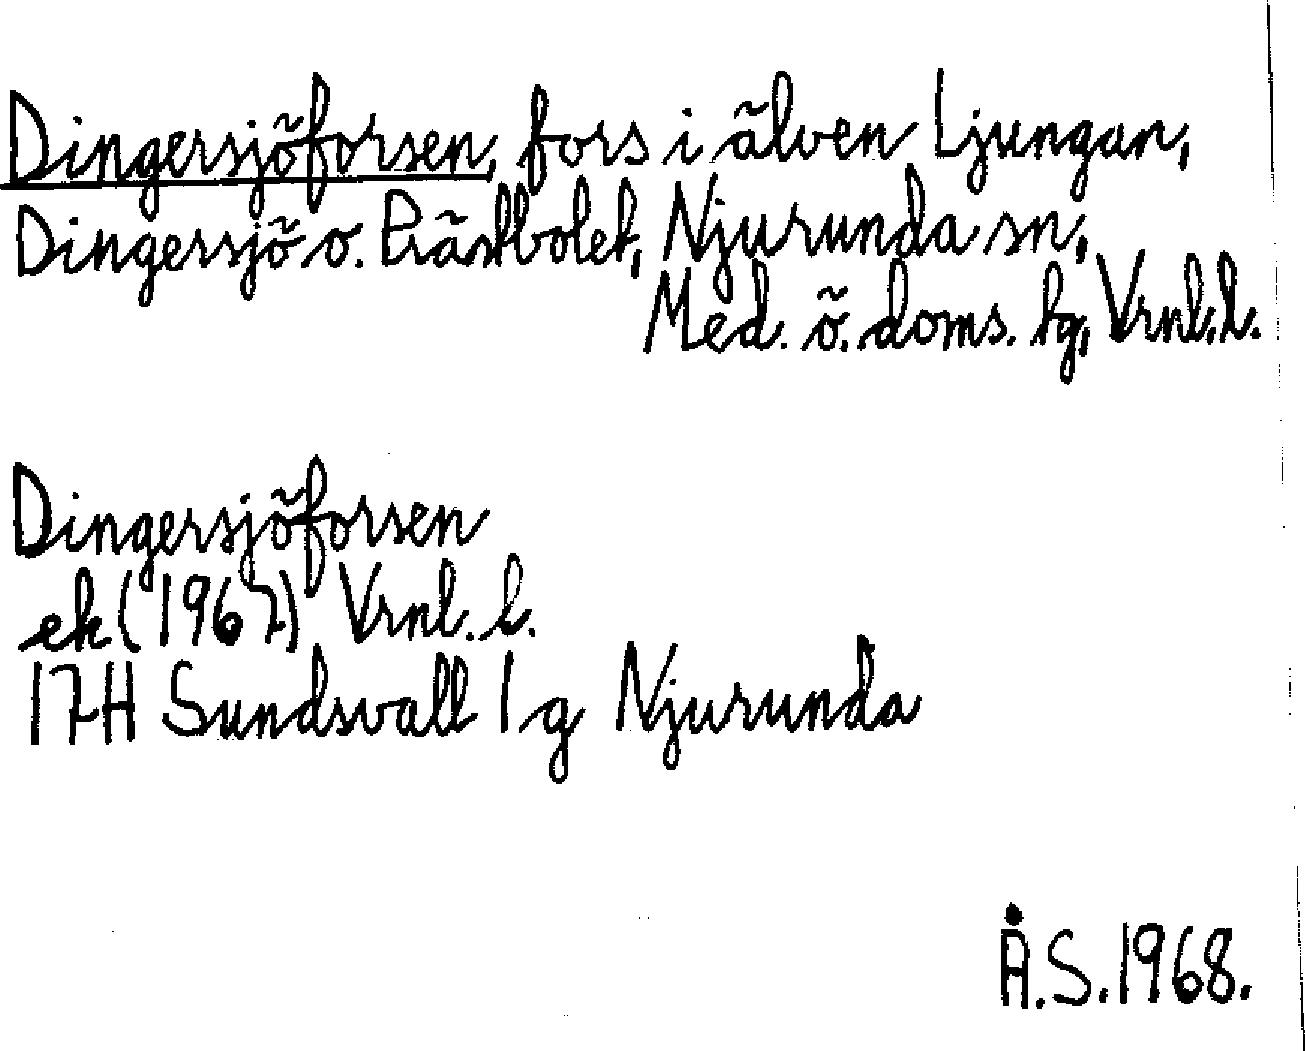 Dingersjöforsen, fors i älven Ljungan,
Dingersjö o. Prästbolet, Njurunda sn,
Med. ö. doms. tg, Vrnl.l.
Dingersjöforsen
ek (1967) Vrnl. l.
17H Sundsvall 1 g Njurunda
Å.S. 1968.